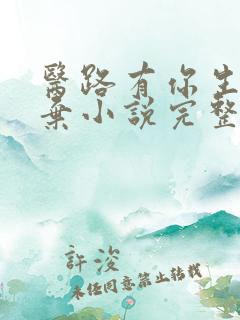 醫路有你生
棄小說完整
許浚
未經同意禁止转载